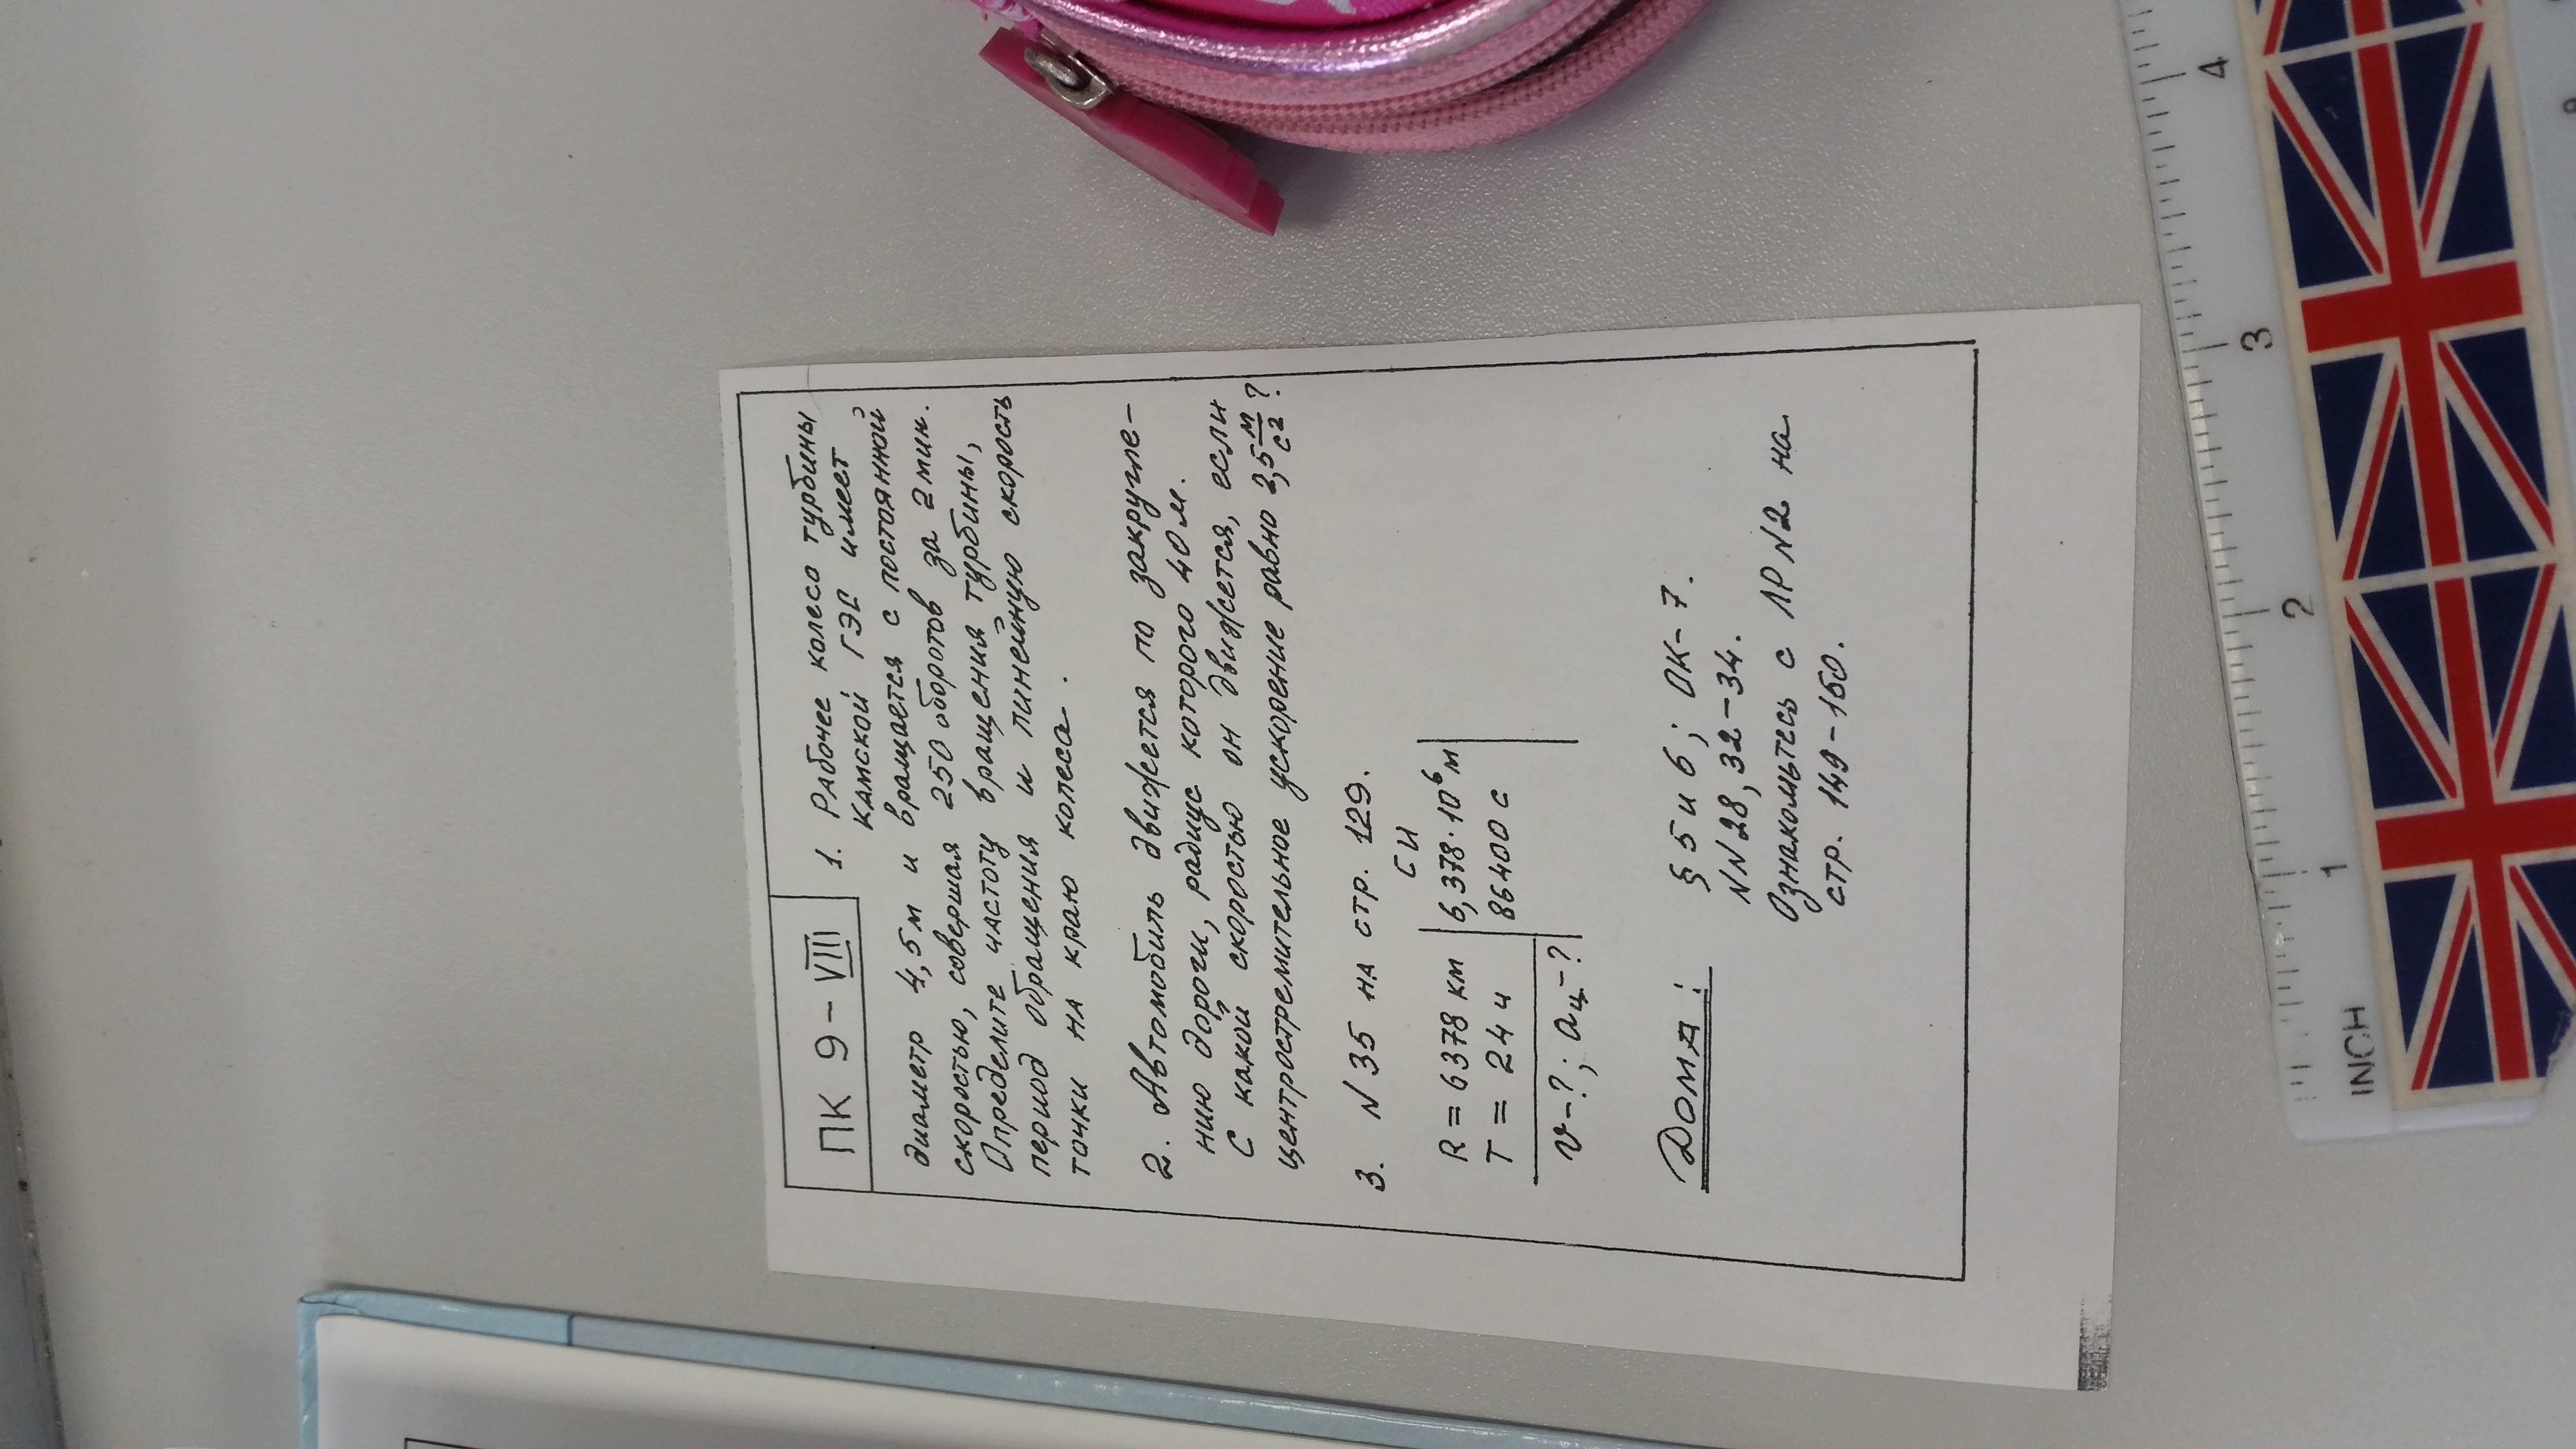 ПК 9-VIII
1. Рабочее колесо турбины
Камской ГЭС имеет
диаметр 4,5м и вращается с постоянной
скоростью, совершая 250 оборотов за 2мин.
Определите частоту вращения турбины,
период обращения и линейную скорость
точки на краю колеса.
2. Автомобиль движется по закругле-
нию дороги, радиус которого 40м.
С какой скоростью он движется, если
центростремительное ускорение равно 2,5 м/с² ?
3. N 35 на стр. 129.
СИ
R = 6378 км | 6,378·10⁶ м
T = 24 ч | 86400 с
v-?; aц-?
Дома:
§ 5 и 6; ОК-7.
NN 28, 32-34.
Ознакомьтесь с ЛР N2 на
стр. 149-150.
INCH
1
2
3
4